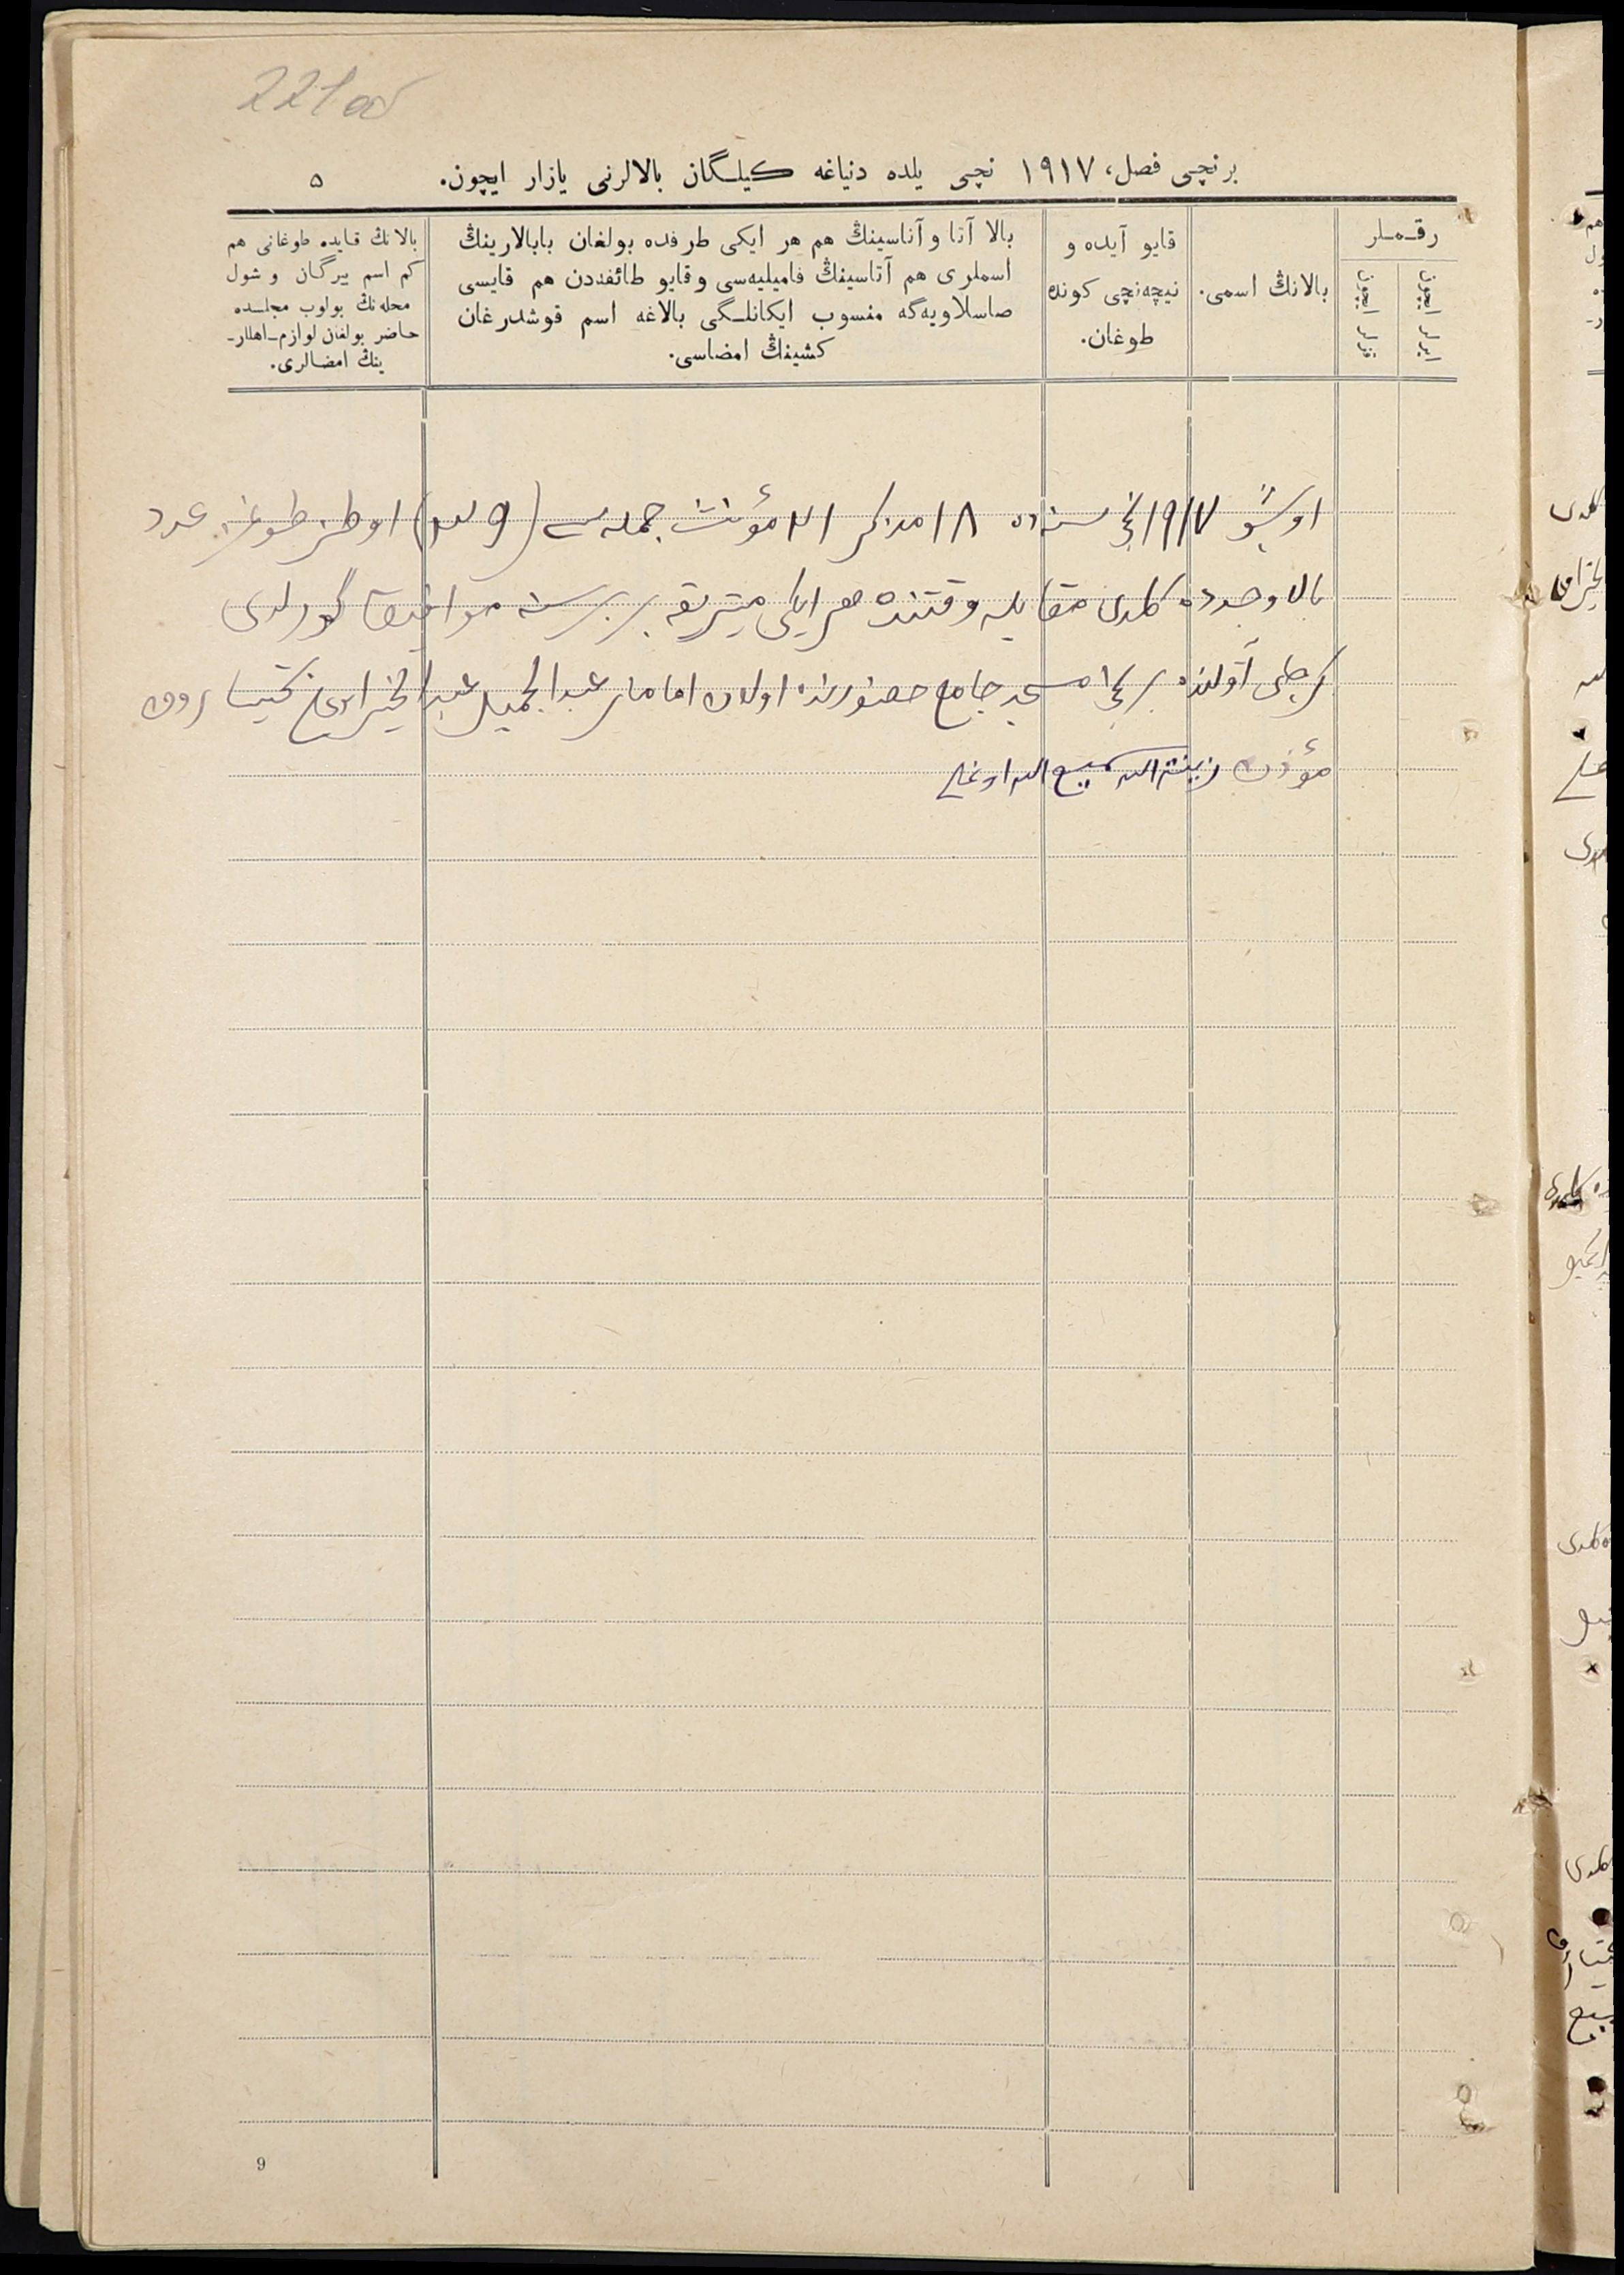 221 об
برنچی فصل، ١٩١٧ نچی یلده دنیاغه کیلـگان بالالرنی یازار ایچون.
٥
رقـملر
ایرلر ایچون
قزلر ایچون
بالانڭ اسمی.
قایو آیده و
نیچه‌نچی کونده
طوغان.
بالا آتا و آناسینڭ هم هر ایکی طرفده بولغان بابالارینڭ
اسملری هم آتاسینڭ فامیلیه‌سی وقایو طائفه‌دن هم قایسی
صاسلاویه‌گه منسوب ایکانلـگی بالاغه اسم قوشدرغان
کشینڭ امضاسی.
بالانڭ قایده طوغانی هم
کم اسم بیرگان و شول
محله‌نڭ بولوب مجلسده
حاضر بولغان لوازم-اهللر-
ینڭ امضالری.
اوشبو ١٩١٧نچی سنه‌ده ١٨ مذکر ٢١ مؤنث جمله‌سی (٣٩) اوطز طوغز عدد
بالا وجدده کلدی مقابله وقتنده هر ایکی میتریقه بر برسنه موافق گورلدی
آولنده برنچی مسجد جامع حضورنده اولان امام عبدالجمیل عبدالخیر
مؤذن زینة الله سمیع الله اوغلی
9